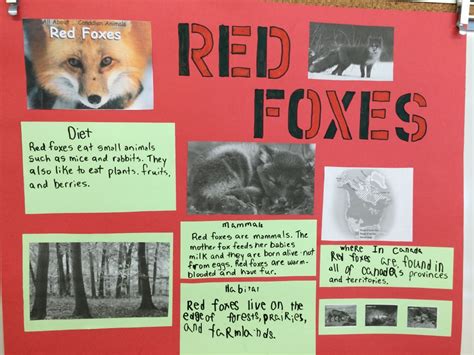 All About Canadian Animals
Red Foxes
RED
FOXES
Diet
Red foxes eat small animals
such as mice and rabbits. They
also like to eat plants, fruits,
and berries.
Mammals
Red foxes are mammals. The
mother fox feeds her babies
milk and they are born alive-not
from eggs. Red foxes are warm-
blooded and have fur.
Habitat
Red foxes live on the
edge of forests, prairies,
and farmlands.
where In Canada
Red foxes are found in
all of Canada's provinces
and territories.